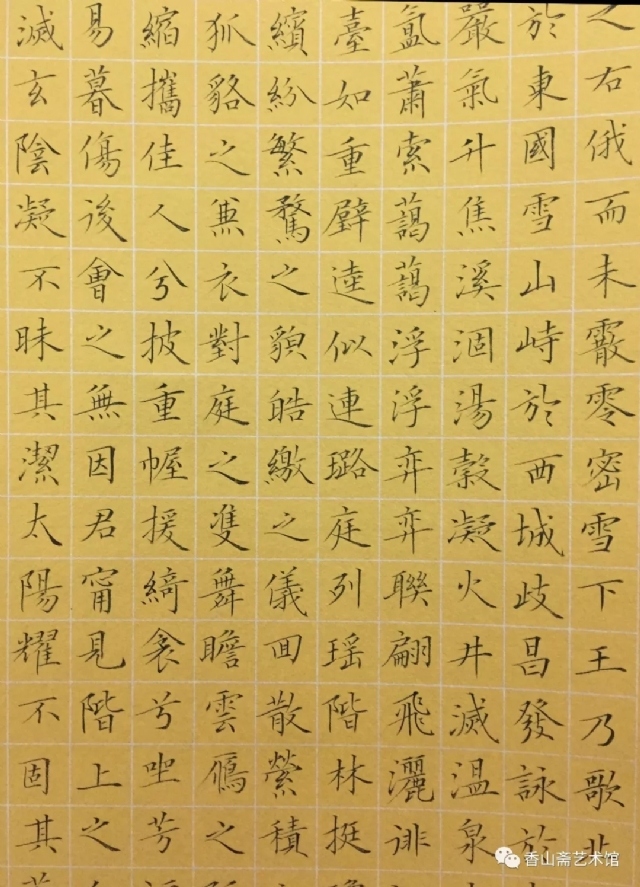 之右俄而未霰零密雪下王乃歌北
於東國雪山峙於西城歧昌發詠於
嚴氣升焦溪涸湯穀凝火井滅温泉
氳蕭索藹藹浮浮弈弈聯翩飛灑徘
臺如重璧逵似連璐庭列瑶階林挺
繽紛繁騖之貌皓繳之儀回散縈積
狐貉之兼衣對庭之隻舞瞻雲鴈之
縮攜佳人兮披重幄援綺衾兮坐芳
易暮傷後會之無因君甯見階上之
滅玄陰凝不昧其潔太陽耀不固其
香山斋艺术馆